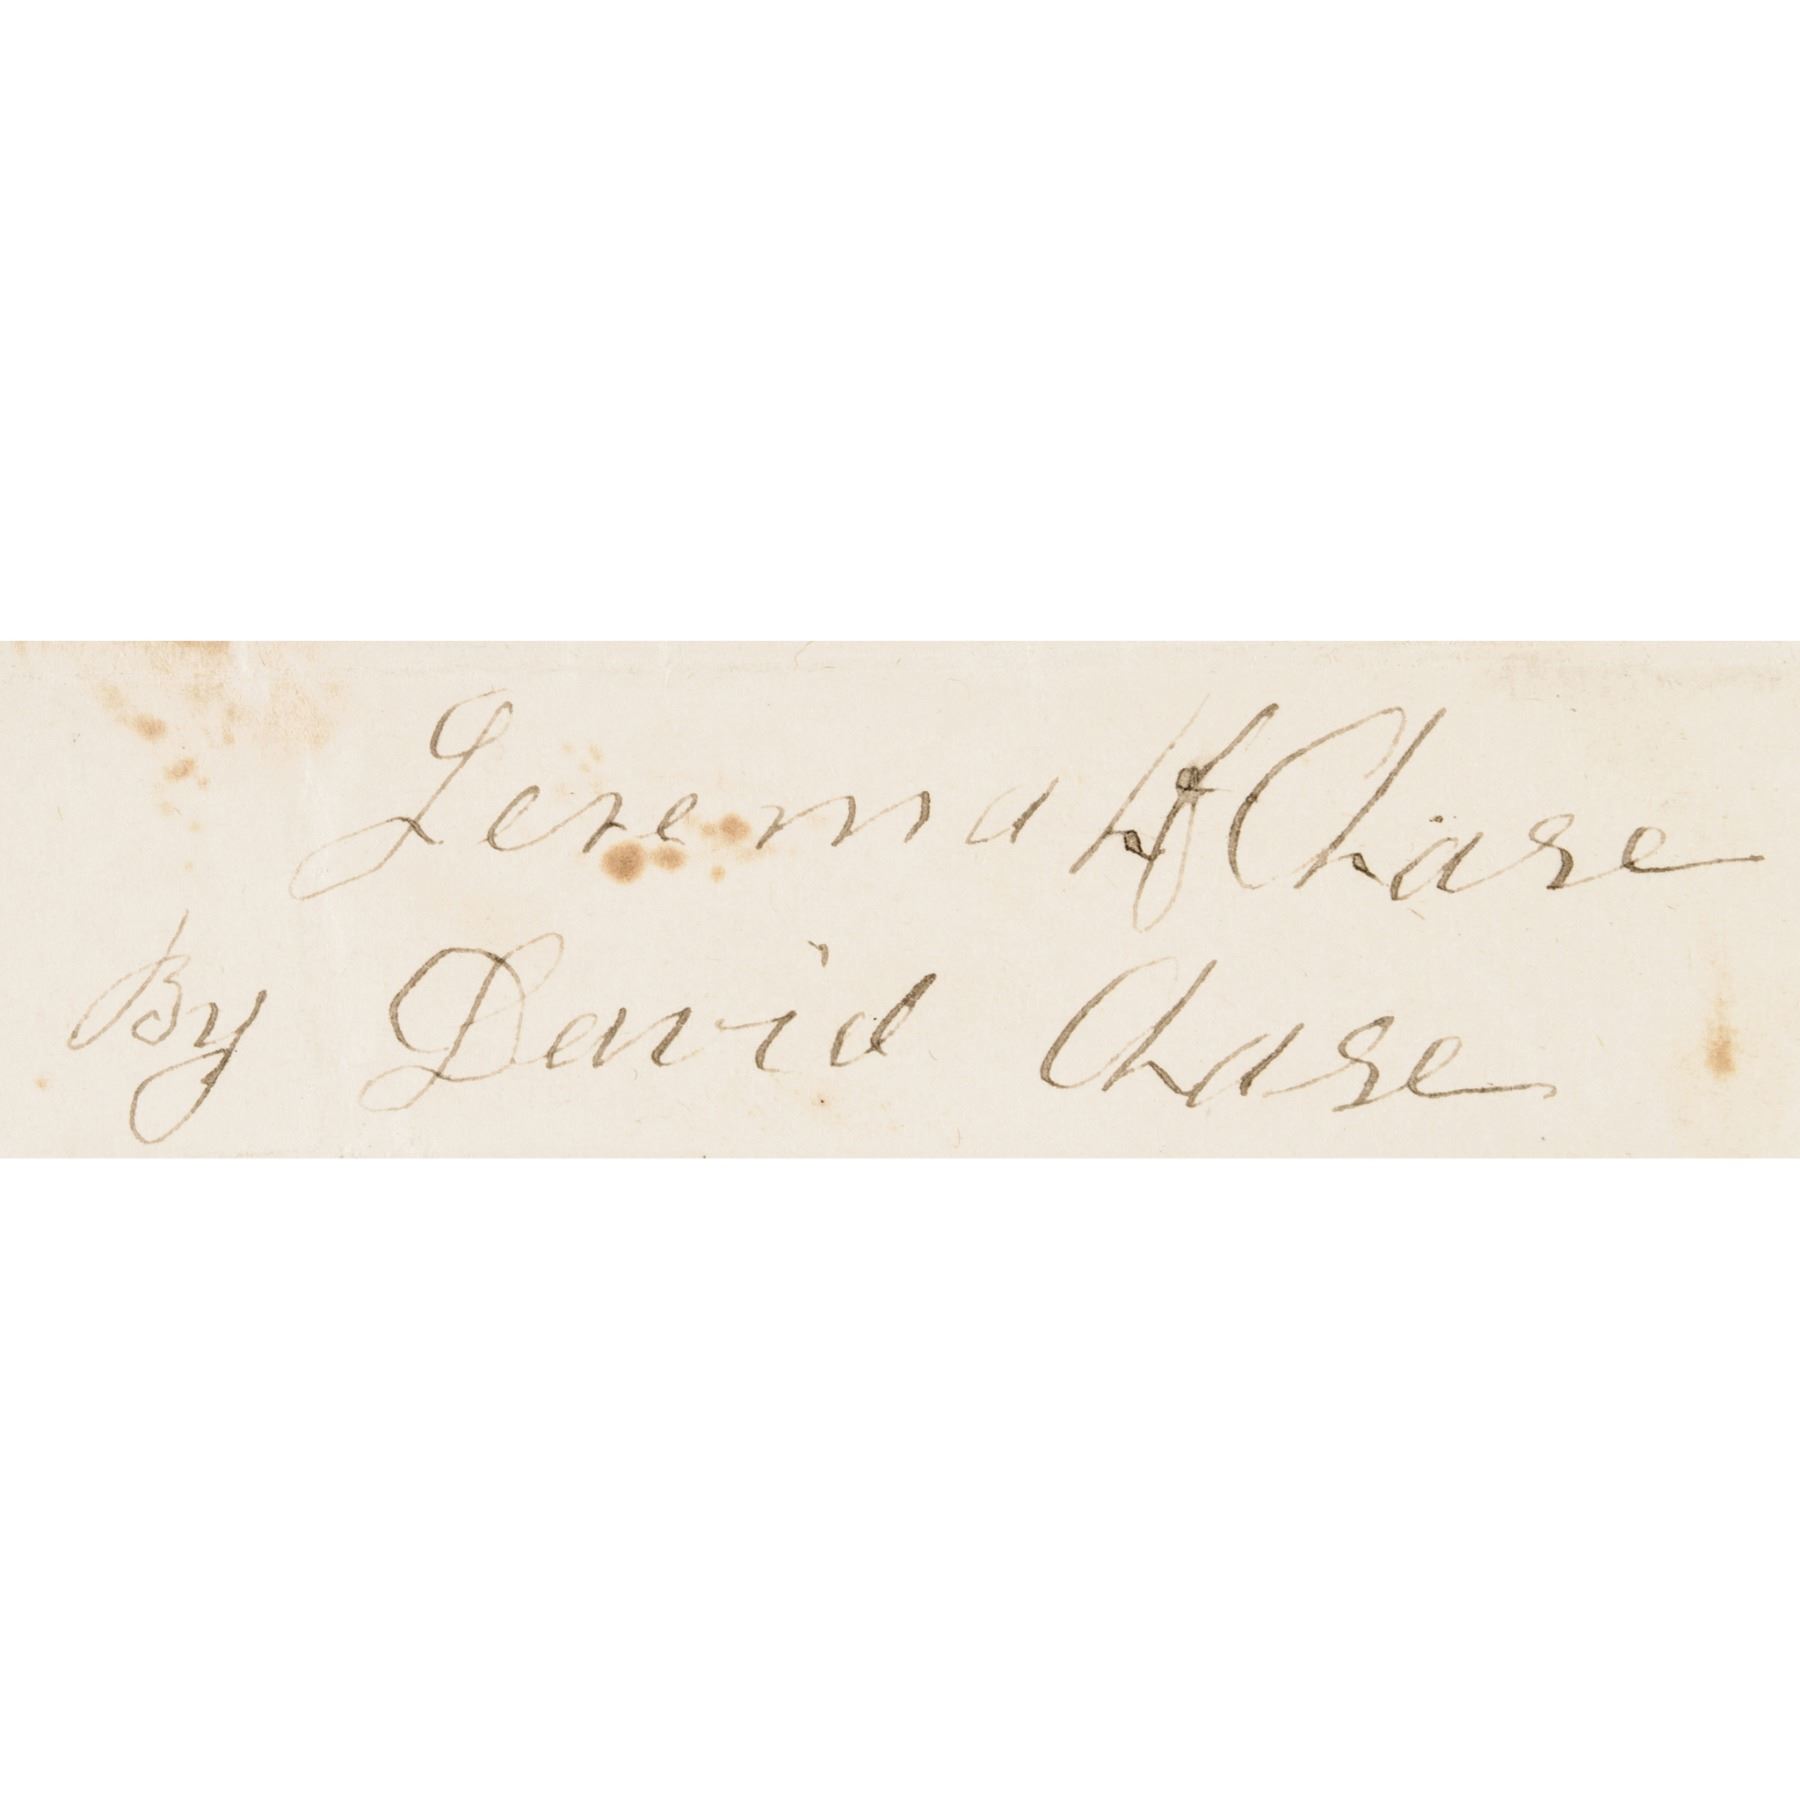 Jeremah Chase
By David Chase